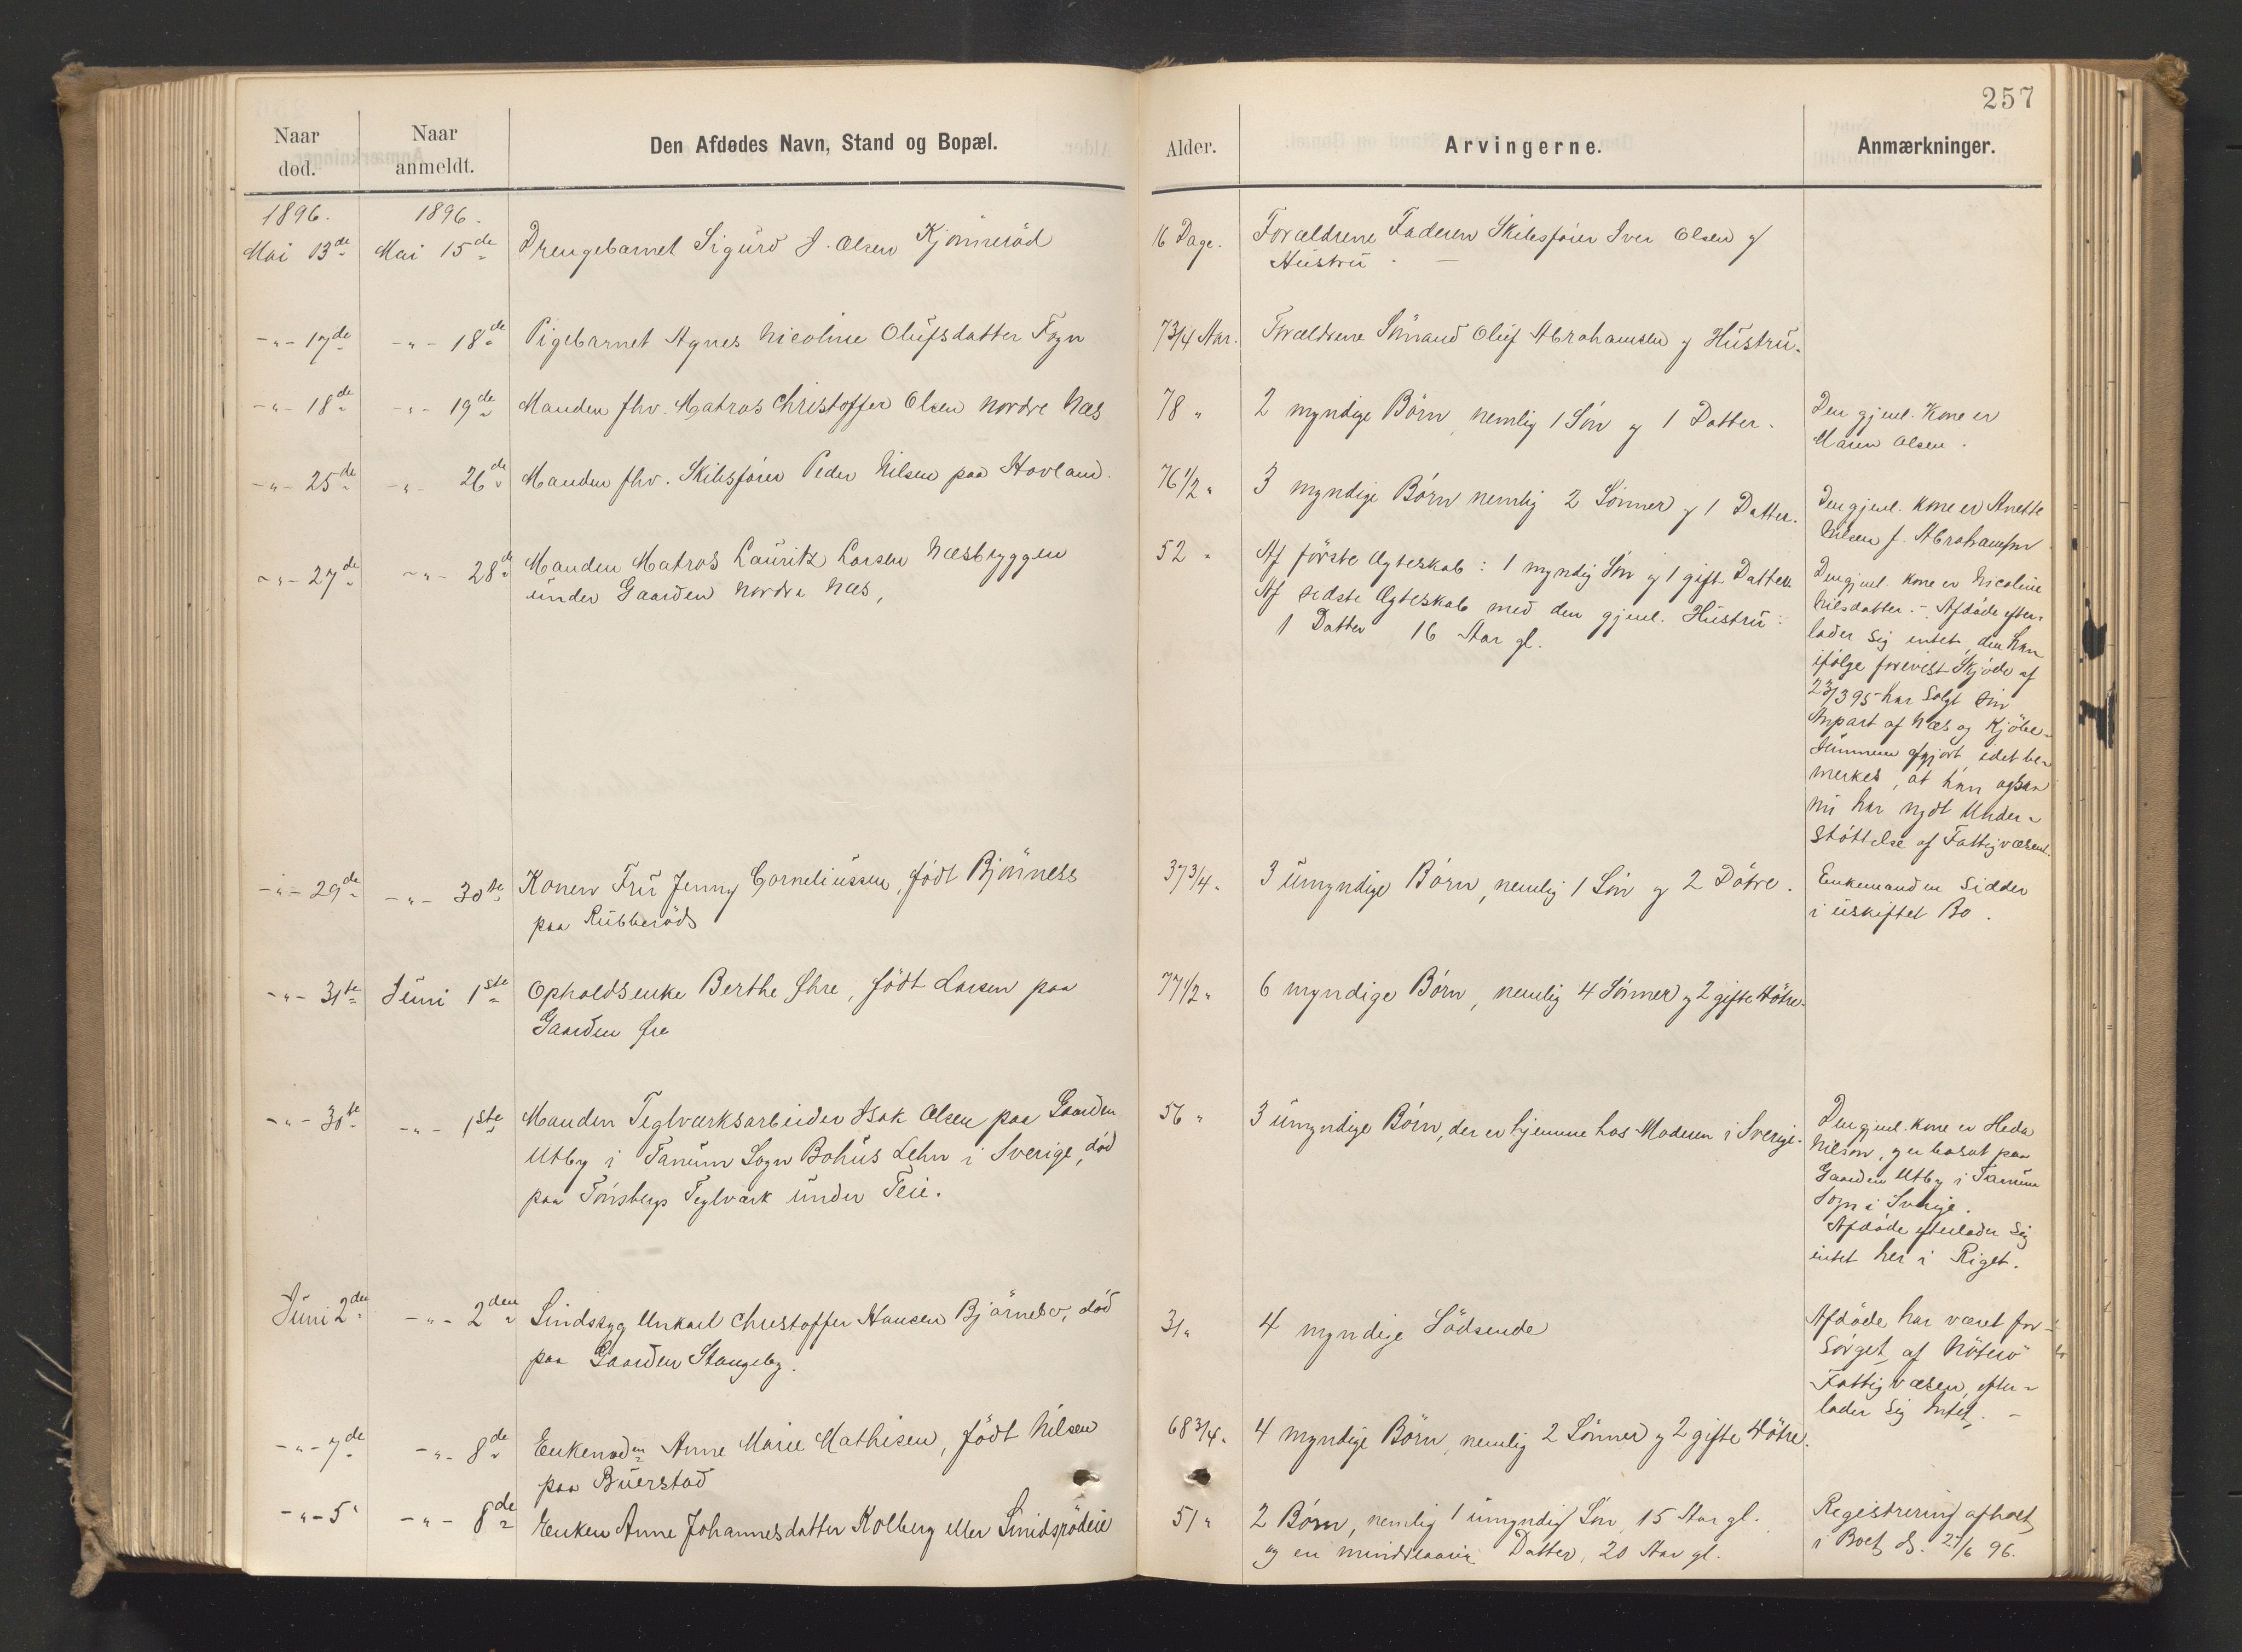 257
Naar død. Naar anmeldt. Den Afdødes Navn, Stand og Bopæl. Alder. Arvingerne. Anmærkninger.
1896. 1896.
Mai 13de Mai 15de Drengebarnet Sigurd J. Olsen Kjønnerød 16 Dage. Forældrene Faderen Skibsfører Iver Olsen og
Hustru.
-"- 17de -"- 18de Pigebarnet Agnes Nicoline Olufsdatter Føyn 7 3/4 Aar. Forældrene Sømand Oluf Abrahamsen og Hustru.
-"- 18de -"- 19de Manden fhv. Matros Christoffer Olsen Nordre Næs 78 " 2 myndige Børn, nemlig 1 Søn og 1 Datter. Den gjenl. Kone er
Maren Olsen.
-"- 25de -"- 26de Manden fhv. Skibsfører Peder Nilsen paa Hovland. 76 1/2 " 3 myndige Børn nemlig 2 Sønner og 1 Datter. Den gjenl. Kone er Anette
Nilsen f. Abrahamsen
-"- 27de -"- 28de Manden Matros Lauritz Larsen Næsbryggen
under Gaarden Nordre Næs,
52 " Af første Ægteskab: 1 myndig Søn og 1 gift Datter.
Af sidste Ægteskab med den gjenl. Hustru:
1 Datter 16 Aar gl.
Den gjenl. Kone er Nicoline
Nilsdatter. - Afdøde efter-
lader sig intet, da han
ifølge forevist Skjøde af
23/3 95 har solgt sin
Anpart af Næs og Kjøbe-
summen opgjort, idet be-
merkes, at han ogsaa
nu har nydt Under-
støttelse af Fattigvæsenet.
-"- 29de -"- 30te Konen Fru Jenny Corneliussen, født Bjønness
paa Rubberøds
37 3/4 " 3 umyndige Børn, nemlig 1 Søn og 2 Døtre. Enkemanden sidder
i uskiftet Bo.
-"- 31te Juni 1ste Opholdsenke Berthe Øhre, født Larsen paa
Gaarden Øre
77 1/2 " 6 myndige Børn, nemlig 4 Sønner og 2 gifte Døtre.
-"- 30te -"- 1ste Manden Teglværksarbeider Isak Olsen paa Gaarden
Utby i Tanum Sogn Bohus Lehn i Sverige, død
paa Tønsbergs Teglværk under Teie.
56 " 3 umyndige Børn, der er hjemme hos Moderen i Sverige.
Den gjenl. Kone er Heda
Nilson, og er bosat paa
Gaarden Utby i Tanum
Sogn i Sverige.
Afdøde efterlader sig
intet her i Riget.
Juni 2den -"- 2den Sindssyg Unkarl Christoffer Hansen Bjørnebo, død
paa Gaarden Stangeby.
31 " 4 myndige Sødsende
Afdøde har været for-
sørget af Nøterø
Fattigvæsen, efter-
lader sig Intet. -
-"- 7de -"- 8de Enkemad. Anne Marie Mathisen, født Nilsen
paa Buerstad
68 3/4 " 4 myndige Børn, nemlig 2 Sønner og 2 gifte Døtre.
-"- 5" -"- 8de Enken Anne Johannesdatter Kolberg eller Smidsrødeie
51 " 2 Børn, nemlig 1 umyndig Søn, 15 Aar gl.
og en mindreaarig Datter, 20 Aar gl.
Registrering afholdt
i Boet d. 27/6 96.